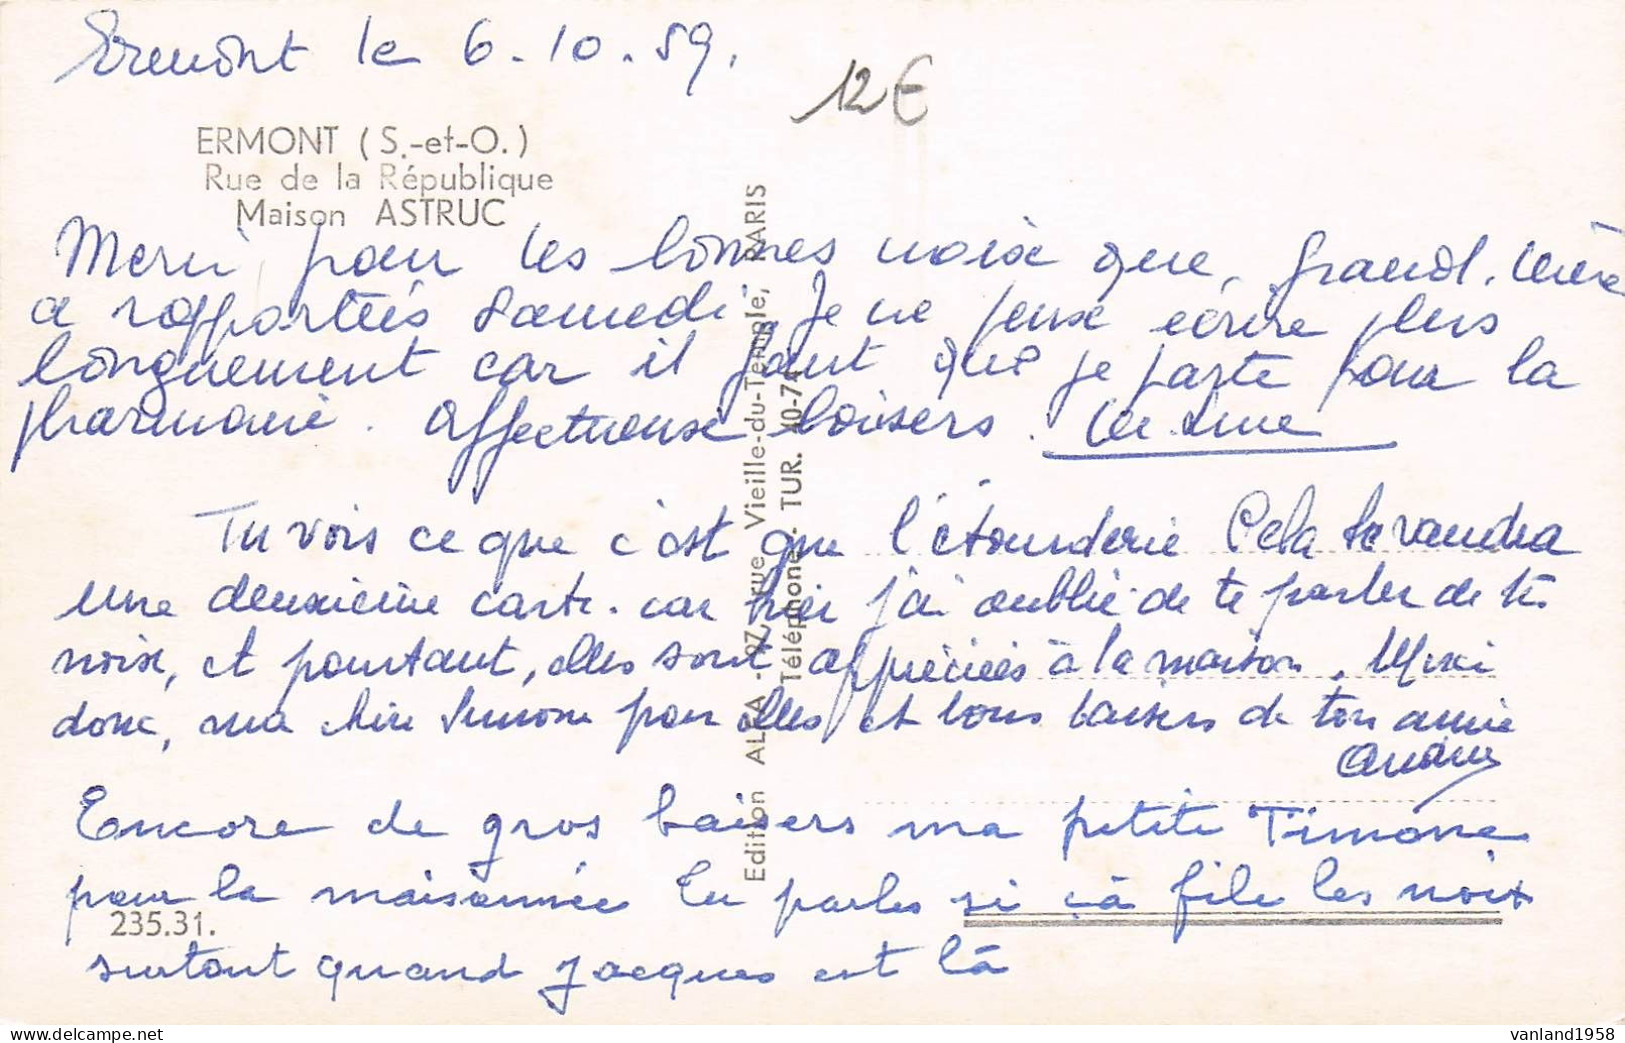 Ermont le 6.10.59.
12€
ERMONT (S.-et-O.)
Rue de la République
Maison ASTRUC
Merci pour les bonnes noix que, grand. Mère
a rapportées samedi. Je ne peux écrire plus
longuement car il faut que je parte pour la
pharmacie. Affectueux baisers.
Tu vois ce que c'est que l'étourderie Cela te vaudra
une deuxième carte. car hier j'ai oublié de te parler de tes
noix, et pourtant, elles sont appréciées à la maison. Merci
donc, ma chère Simone pour elles et bons baisers de ton amie
Encore de gros baisers ma petite Simone
pour la maisonnée Tu parles si çà file les noix
surtout quand Jacques est là
235.31.
Edition ALFA - 97, rue Vieille-du-Temple, PARIS
Téléphone : TUR. 40-74
vanland1958